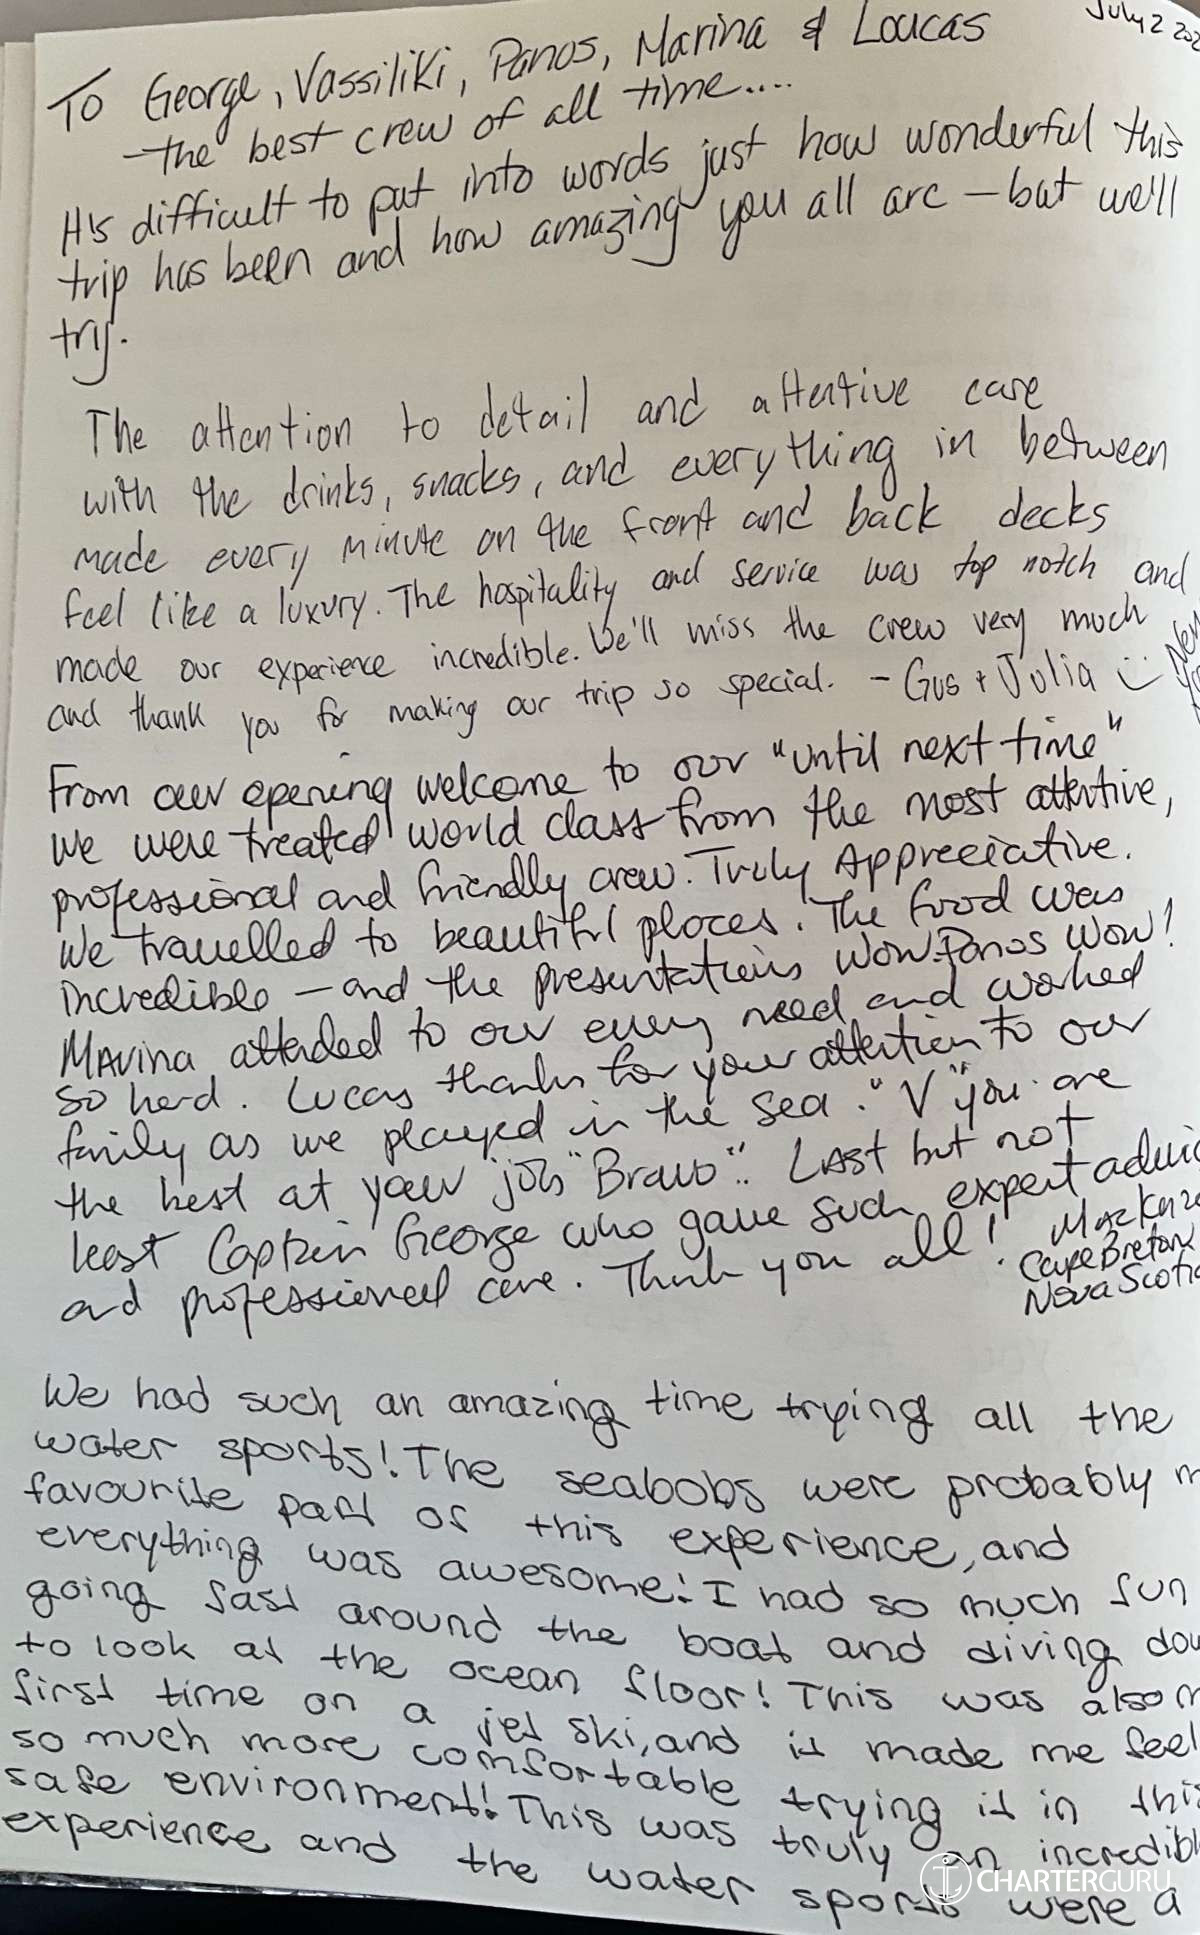 July 2 202
To George, Vassiliki, Panos, Marina & Loucas
- the best crew of all time....
It's difficult to put into words just how wonderful this
trip has been and how amazing you all are - but we'll
try.
The attention to detail and attentive care
with the drinks, snacks, and everything in between
made every minute on the front and back decks
feel like a luxury. The hospitality and service was top notch and
made our experience incredible. We'll miss the crew very much
and thank you for making our trip so special. - Gus + Julia
From our opening welcome to our "until next time"
we were treated world class from the most attentive,
professional and friendly crew. Truly Appreciative.
We travelled to beautiful places. The food was
incredible - and the presentations Wow. Panos Wow!
Marina attended to our every need and worked
so hard. Lucas thanks for your attention to our
family as we played in the sea. "V" you are
the best at your job "Bravo". Last but not
least Captain George who gave such expert advic
and professional care. Thank you all!
Cape Breton
Nova Scotia
We had such an amazing time trying all the
water sports! The seabobs were probably m
favourite part of this experience, and
everything was awesome! I had so much fun
going fast around the boat and diving dow
to look at the ocean floor! This was also m
first time on a jet ski, and it made me feel
so much more comfortable trying it in this
safe environment! This was truly an incredibl
experience and the water sports were a
CHARTERGURU